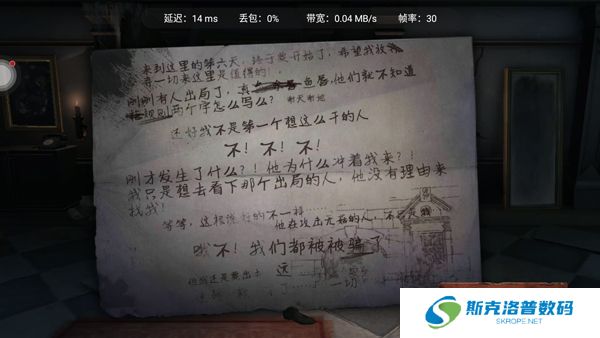 延迟：14 ms 丢包：0% 带宽：0.04 MB/s 帧率：30
来到这里的第六天，终于要开始了，希望我放
弃一切来这里是值得的！。
刚刚有人出局了，真 鱼唇，他们就不知道
规则两个字怎么写么？ 谢天谢地
还好我不是第一个想这么干的人
不！不！不！
刚才发生了什么？！他为什么冲着我来？！
我只是想去看下那个出局的人，他没有理由来
找我！
等等，这根 的不一样
他在攻击无辜的人，不
不！我们都被被骗了
但我还是要出去
远
一切
斯克洛普数码
SKROPE.NET